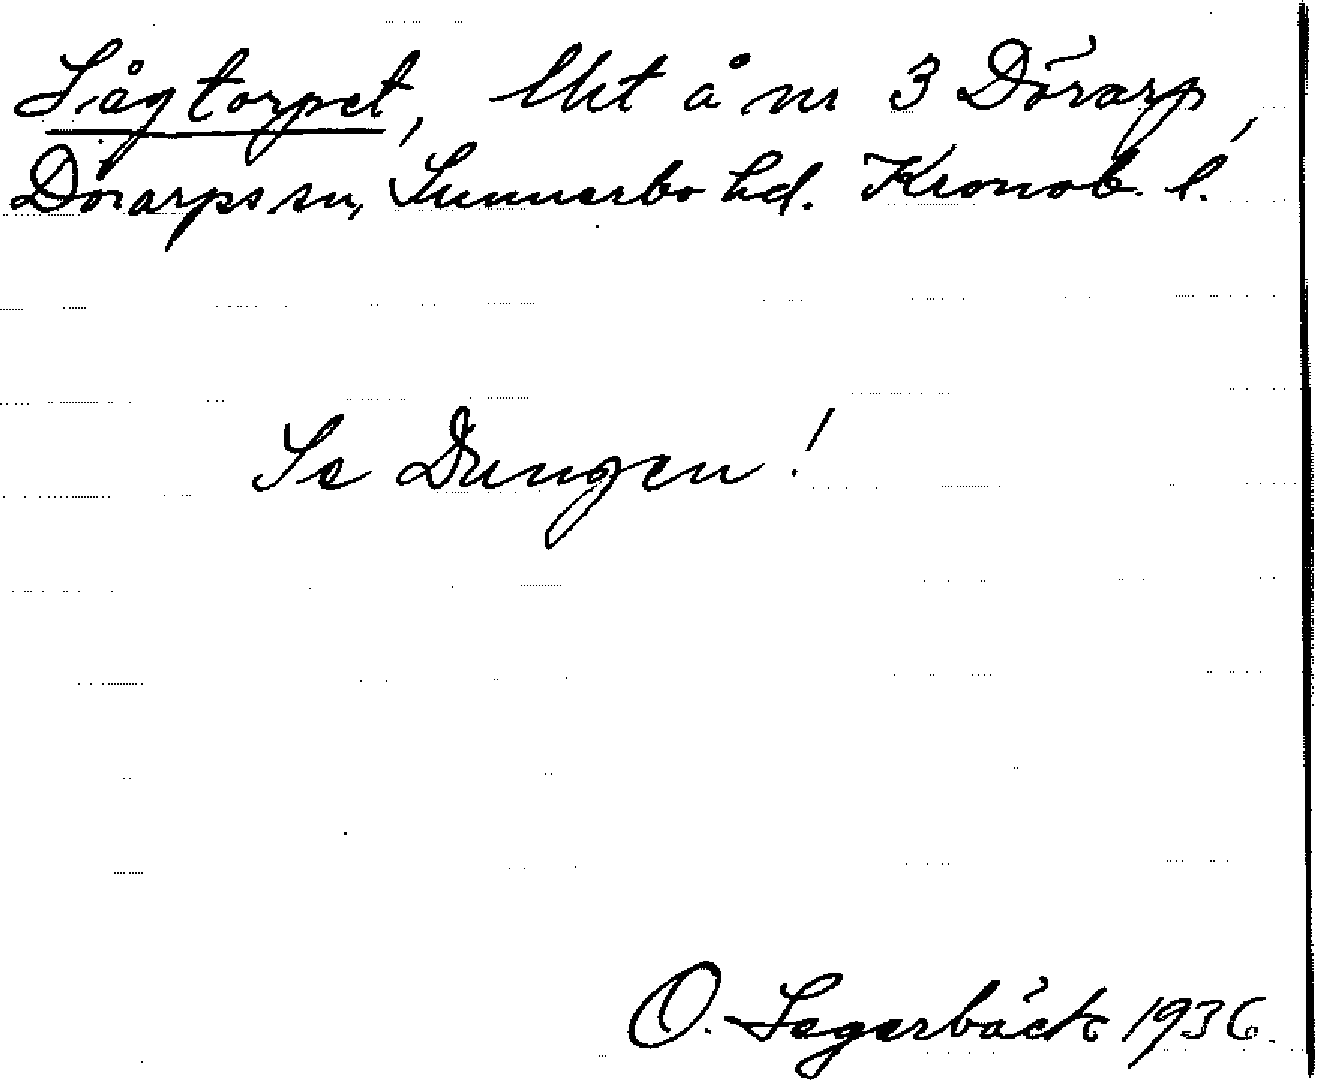 Sågtorpet, lht å nr 3 Dörarp,
Dörarps sn, Sunnerbo hd. Kronob. l.
Se Dungen!
O. Segerbäck 1936.